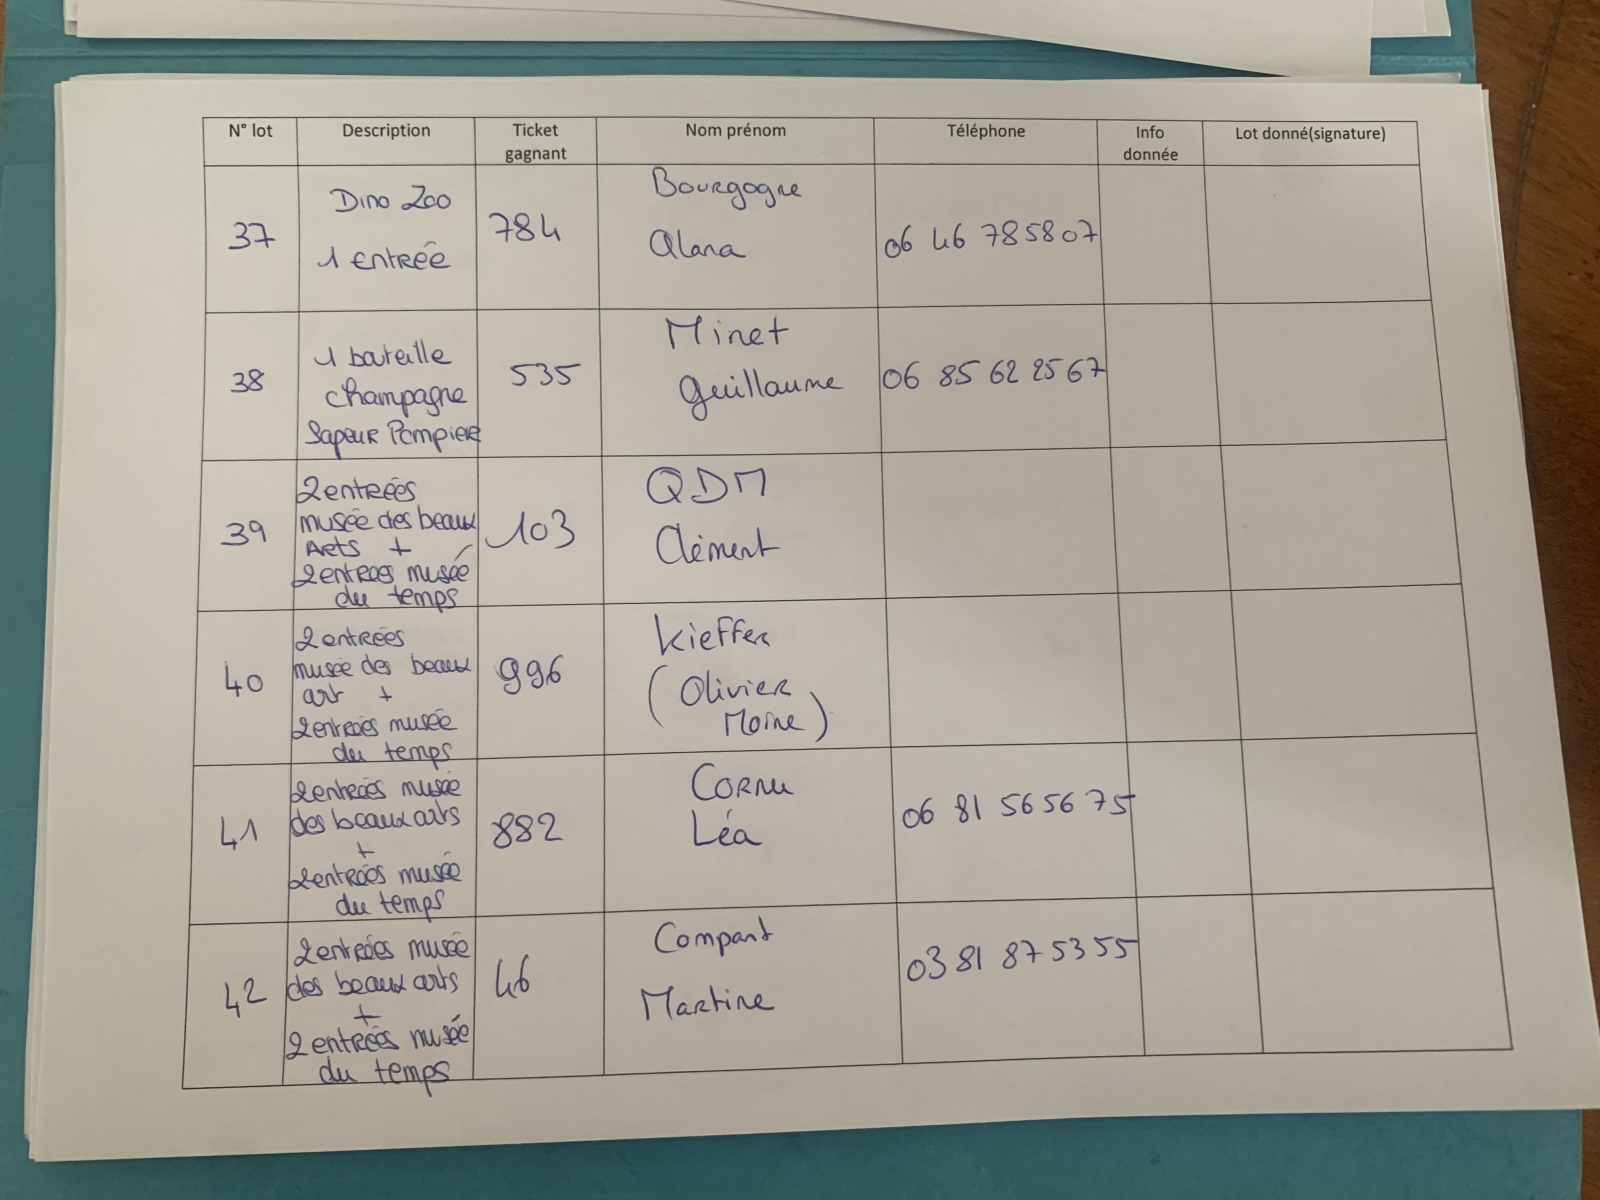 N° lot
Description
Ticket
gagnant
Nom prénom
Téléphone
Info
donnée
Lot donné(signature)
37
Dino Zoo
1 entrée
784
Bourgogne
Alana
06 46 785807
38
1 bouteille
champagne
Sapeur Pompier
535
Minet
Guillaume
06 85 62 25 67
39
2 entrées
musée des beaux
Arts +
2 entrées musée
du temps
103
QDM
Clément
40
2 entrées
musée des beaux
art +
2 entrées musée
du temps
996
Kieffer
(Olivier
Moine)
41
2 entrées musée
des beaux arts
+
2 entrées musée
du temps
882
Cornu
Léa
06 81 56 56 75
42
2 entrées musée
des beaux arts
+
2 entrées musée
du temps
46
Compant
Martine
03 81 87 53 55